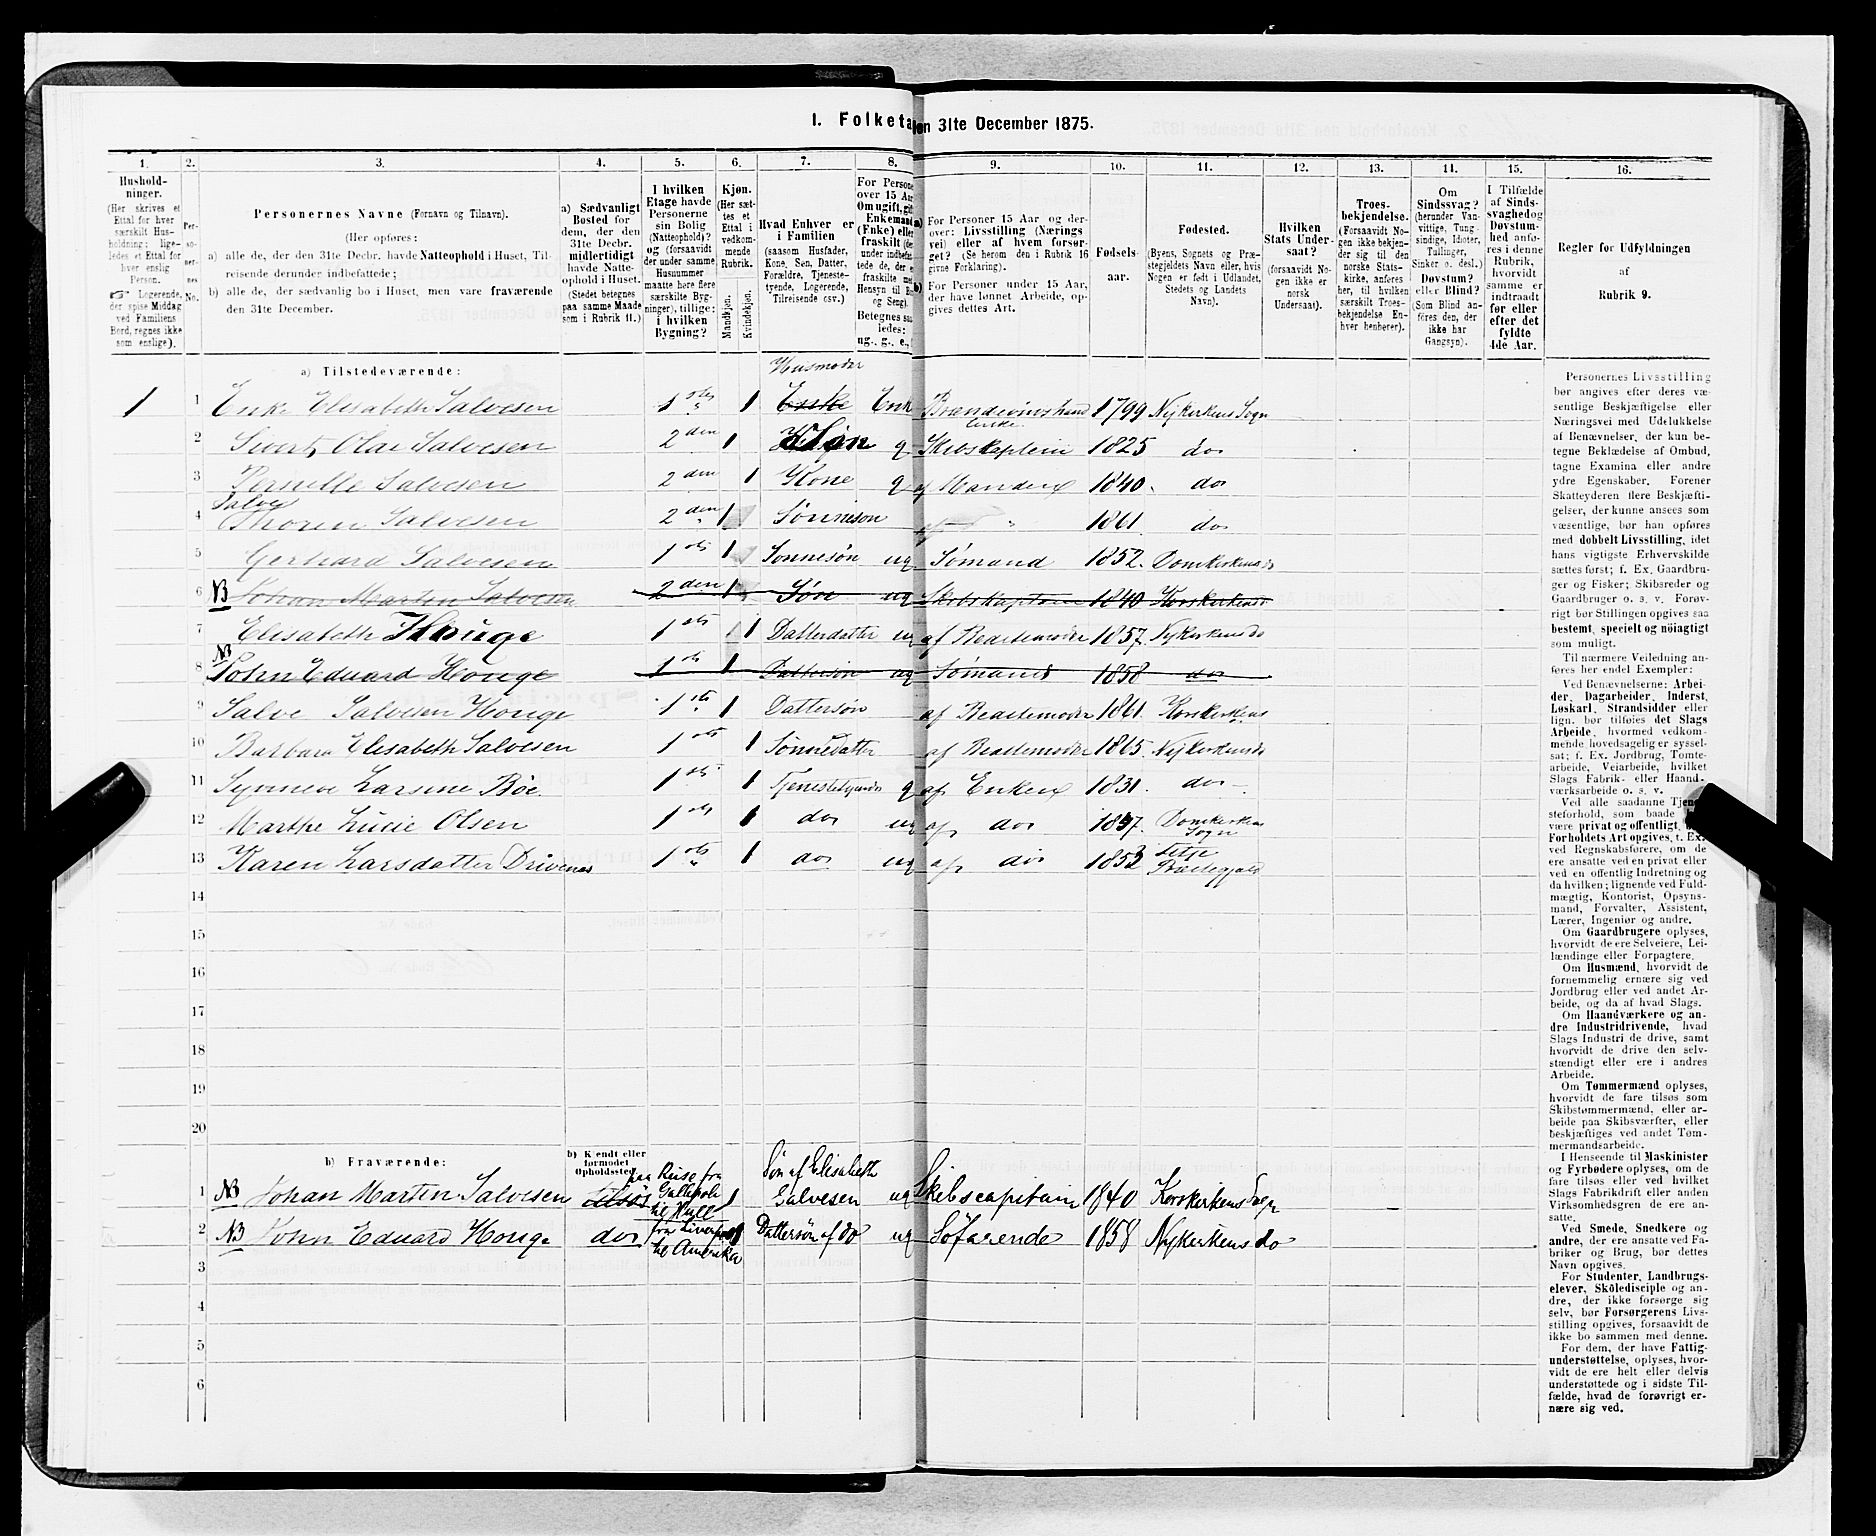 1. Folketa en 31te December 1875.
1. 2. 3. 4. 5. 6. 7. 8. 9. 10. 11. 12. 13. 14. 15. 16.
Hushold-
ninger.
(Her skrives et
Ettal for hver
særskilt Hus-
holdning; lige-
ledes et Ettal for
hver enslig
Person.
☞ Logerende,
der spise Middag
ved Familiens
Bord, regnes ikke
som enslige).
Per-
so-
ner-
nes
No.
Personernes Navne (Fornavn og Tilnavn).
(Her opføres:
a) alle de, der den 31te Decbr. havde Natteophold i Huset, Til-
reisende derunder indbefattede;
b) alle de, der sædvanlig bo i Huset, men vare fraværende
den 31te December.
a) Sædvanligt
Bosted for
dem, der den
31te Decbr.
midlertidigt
havde Natte-
ophold i Huset.
(Stedet betegnes
paa samme Maade
som i Rubrik 11.)
I hvilken
Etage havde
Personerne
sin Bolig
(Natteophold)?
og (forsaavidt
der under samme
Husnummer
maatte høre flere
særskilte Byg-
ninger), tillige:
i hvilken
Bygning?
Kjøn.
(Her sæt-
tes et
Ettal i
vedkom-
mende
Rubrik.
Mandkjøn.
Kvindekjøn.
Hvad Enhver er
i Familien
(saasom Husfader,
Kone, Søn, Datter,
Forældre, Tjeneste-
tyende, Logerende,
Tilreisende osv.)
For Persone
over 15 Aar
Om ugift, gift
Enkemand
(Enke) eller
fraskilt (de
under indbefat-
tede de, der e
fraskilte m
Hensyn til B
og Seng).
Betegnes saa
ledes:
ug., g., e.,
a) For Personer 15 Aar og der-
over: Livsstilling (Nærings
vei) eller af hvem forsør-
get? (Se herom den i Rubrik 16
givne Forklaring).
b) For Personer under 15 Aar,
der have lønnet Arbeide, op-
gives dettes Art.
Fødsels-
aar.
Fødested.
(Byens, Sognets og Præ-
stegjeldets Navn eller, hvis
Nogen er født i Udlandet,
Stedets og Landets
Navn).
Hvilken
Stats Under-
saat?
(forsaavidt No-
gen ikke er
norsk
Undersaat).
Troes-
bekjendelse.
(Forsaavidt No-
gen ikke bekjen-
der sig til den
norske Stats-
kirke, anføres
her, til hvilken
særskilt Troes-
bekjendelse En-
hver henhører).
Om
Sindssvag?
(herunder Van-
vittige, Tung-
sindige, Idioter,
Tullinger,
Sinker o. desl.)
Døvstum?
eller Blind?
(Som Blind an-
føres den, der
ikke har
Gangsyn).
I Tilfælde
af Sinds-
svaghed og
Døvstum-
hed anfø-
res i denne
Rubrik,
hvorvidt
samme er
indtraadt
før eller
efter det
fyldte
4de Aar.
Regler for Udfyldningen
af
Rubrik 9.
a) Tilstedeværende:
Husmoder
1 1 Enke Elisabeth Salvesen 1 ste 1 Enke Enke Brændevinshand 1799 Nykirkens Sogn
Enke
2 Sivert Olai Salvesen 2 den 1 Søn g Skibskaptein 1825 do
3 Pernille Salvesen 2 den 1 Kone g af Manden 1840. do
Salve
4 Thorin Salvesen 2 den 1 Sønneson af " 1861. do
5 Gerhard Salvesen 1 ste 1 Sonnesøn ug Sømand 1852. Domkirkens do
NB
6 Johan Martin Salvesen 2 den 1 Søn ug Skibskaptain 1840 Korskirkens do
7 Elisabeth Houge 1 ste 1 Datterdatter ug af Bestemoder 1857. Nykirkens do
NB
8 John Eduard Houge 1 ste 1 Dattersøn ug Sømand 1858 do
9 Salve Salvesen Houge 1 ste 1 Dattersøn af Bestemoder 1861. Korskirkens
10 Barbara Elisabeth Salvesen 1 ste 1 Sønnedatter af Bestemoder 1865. Nykirkens do
11 Synneve Larsine Böe 1 ste 1 Tjenestetyende g af Enken 1831. do
12 Marthe Lucie Olsen 1 ste 1 do ug af do 1857. Domkirkens
Sogn
13 Karen Larsdatter Drivenes 1 ste 1 do ug af do 1853
Præstegjæld
14
15
16
17
18
19
20
b) Fraværende: b) Kjendt eller
formodet
Opholdssted.
paa Reise fra Søn af Elisabeth
1 NB Johan Martin Salvesen tilsøs Gallipoli 1 Salvesen ug Skibscapitain 1840 Korskirkens Sogn
til Hull
2 NB John Eduard Houge do fra Liverpool 1 Dattersøn af do ug Söfarende 1858 Nykirkens do
til Amerika
3
4
5
6
Personernes Livsstilling
bør angives efter deres væ-
sentlige Beskjæftigelse eller
Næringsvei med Udelukkelse
af Benævnelser, der kun be-
tegne Beklædelse af Ombud,
tagne Examina eller andre
ydre Egenskaber. Forener
Skatteyderen flere Beskjæfti-
gelser, der kunne ansees som
væsentlige, bør han opføres
med dobbelt Livsstilling, idet
hans vigtigste Erhvervskilde
sættes først; f. Ex. Gaardbru-
ger og Fisker; Skibsreder og
Gaardbruger o. s. v. Forøv-
rigt bør Stillingen opgives saa
bestemt, specielt og nöiagtigt
som muligt.
Til nærmere Veiledning an-
føres her endel Exempler:
Ved Benævnelserne: Arbei-
der, Dagarbeider, Inderst,
Løskarl, Strandsidder eller
lign. bør tilføies det Slags
Arbeide, hvormed vedkom-
mende hovedsagelig er syssel-
sat; f. Ex. Jordbrug, Tomte-
arbeide, Veiarbeide, hvilket
Slags Fabrik- eller Haand-
værksarbeide o. s. v.
Ved alle saadanne Tjene
steforhold, som baade
være privat og offentligt,
Forholdets Art opgives, t. Ex.
ved Regnskabsførere, om de
ere ansatte ved en privat eller
ved en offentlig Indretning og
da hvilken; lignende ved Fuld-
mægtig, Kontorist, Opsyns-
mand, Forvalter, Assistent,
Lærer, Ingeniør og andre.
Om Gaardbrugere oplyses,
hvorvidt de ere Selveiere, Lei-
lændinge eller Forpagtere.
Om Husmænd, hvorvidt de
fornemmelig ernære sig ved
Jordbrug eller ved andet Ar-
beide, og da af hvad Slags.
Om Haandværkere og an-
dre Industridrivende, hvad
Slags Industri de drive, samt
hvorvidt de drive den selv-
stændigt eller ere i andres
Arbeide.
Om Tømmermænd oplyses,
hvorvidt de fare tilsøs som
Skibstømmermænd, eller ar-
beide paa Skibsværfter, eller
beskjæftiges ved andet Tøm-
mermandsarbeide.
I Henseende til Maskinister
og Fyrbødere oplyses, om de
fare tilsøs eller ved hvilket
Slags Fabrikdrift eller anden
Virksomhedsgren de ere an-
satte.
Ved Smede, Snedkere og
andre, der ere ansatte ved Fa-
briker og Brug, bør dettes
Navn opgives.
For Studenter, Landbrugs-
elever, Skoledisciple og an-
dre, der ikke forsørge sig
selv, bør Forsørgerens Livs-
stilling opgives, forsaavidt de
ikke bo sammen med denne.
For dem, der have Fattig-
understøttelse, oplyses, hvor-
vidt de ere helt eller delvis
understøttede og i sidste Til-
fælde, hvad de forøvrigt er-
nære sig ved.